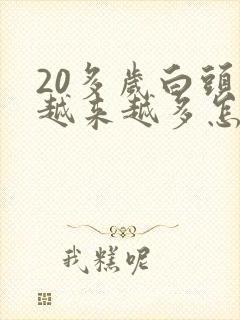 20多歲白頭
越来越多怎
我糕呢